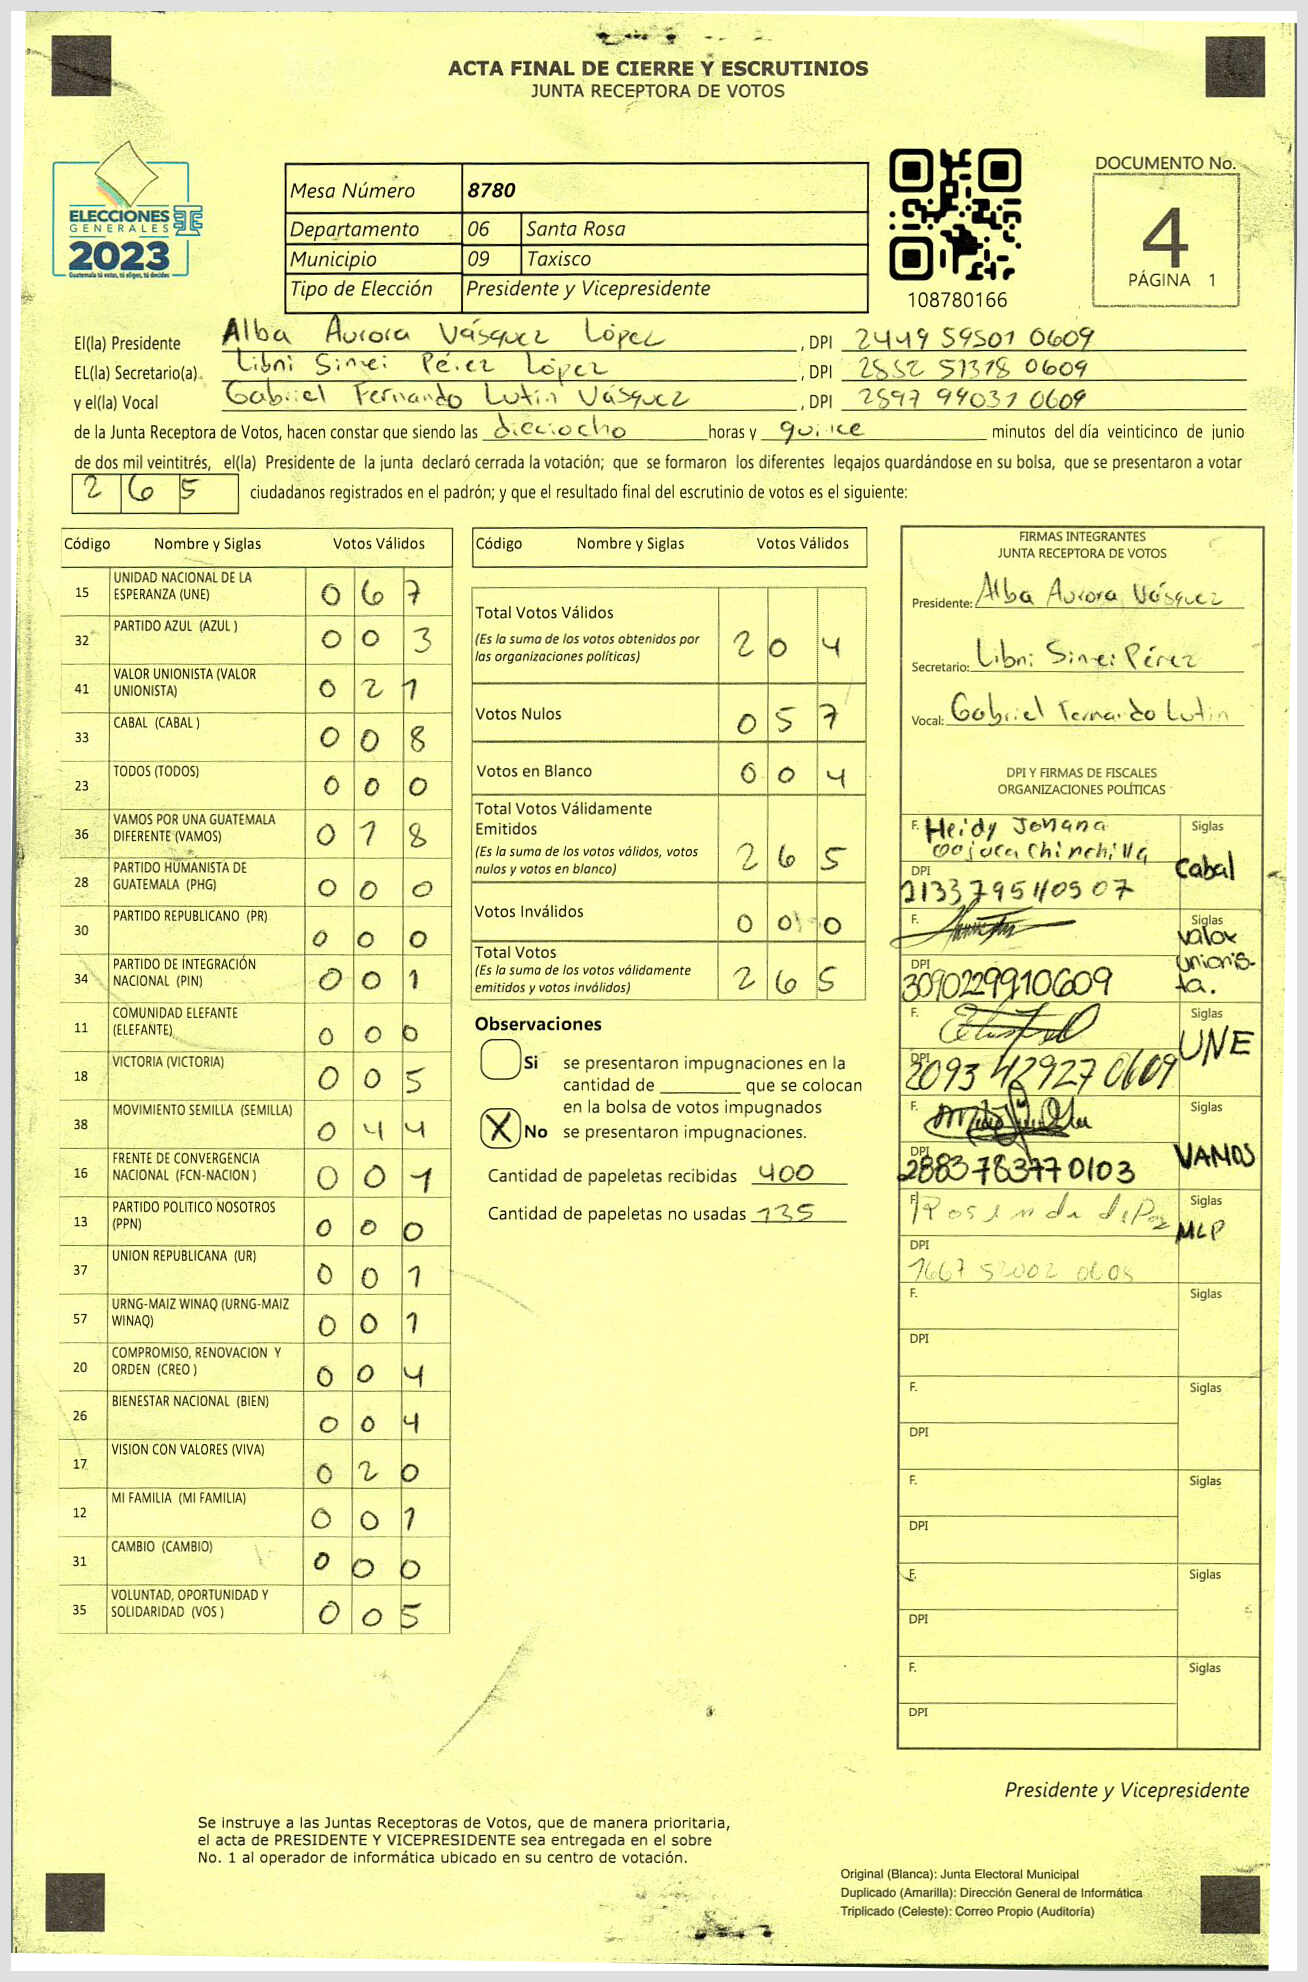 ACTA FINAL DE CIERRE Y ESCRUTINIOS
JUNTA RECEPTORA DE VOTOS
ELECCIONES
GENERALES
2023
Guatemala tú votas, tú eliges, tú decides
Mesa Número 8780
Departamento 06 Santa Rosa
Municipio 09 Taxisco
Tipo de Elección Presidente y Vicepresidente
108780166
DOCUMENTO No.
4
PÁGINA 1
El(la) Presidente Alba Aurora Vásquez López, DPI 2449 59501 0609
EL(la) Secretario(a) Libni Simei Pérez López, DPI 2852 51378 0609
y el(la) Vocal Gabriel Fernando Lutin Vásquez, DPI 2897 99031 0609
de la Junta Receptora de Votos, hacen constar que siendo las dieciocho horas y quince minutos del día veinticinco de junio
de dos mil veintitrés, el(la) Presidente de la junta declaró cerrada la votación; que se formaron los diferentes legajos guardándose en su bolsa, que se presentaron a votar
2 6 5 ciudadanos registrados en el padrón; y que el resultado final del escrutinio de votos es el siguiente:
Código Nombre y Siglas Votos Válidos
15 UNIDAD NACIONAL DE LA ESPERANZA (UNE) 0 6 7
32 PARTIDO AZUL (AZUL ) 0 0 3
41 VALOR UNIONISTA (VALOR UNIONISTA) 0 2 1
33 CABAL (CABAL ) 0 0 8
23 TODOS (TODOS) 0 0 0
36 VAMOS POR UNA GUATEMALA DIFERENTE (VAMOS) 0 1 8
28 PARTIDO HUMANISTA DE GUATEMALA (PHG) 0 0 0
30 PARTIDO REPUBLICANO (PR) 0 0 0
34 PARTIDO DE INTEGRACIÓN NACIONAL (PIN) 0 0 1
11 COMUNIDAD ELEFANTE (ELEFANTE) 0 0 0
18 VICTORIA (VICTORIA) 0 0 5
38 MOVIMIENTO SEMILLA (SEMILLA) 0 4 4
16 FRENTE DE CONVERGENCIA NACIONAL (FCN-NACION ) 0 0 1
13 PARTIDO POLITICO NOSOTROS (PPN) 0 0 0
37 UNION REPUBLICANA (UR) 0 0 1
57 URNG-MAIZ WINAQ (URNG-MAIZ WINAQ) 0 0 1
20 COMPROMISO, RENOVACION Y ORDEN (CREO ) 0 0 4
26 BIENESTAR NACIONAL (BIEN) 0 0 4
17 VISION CON VALORES (VIVA) 0 2 0
12 MI FAMILIA (MI FAMILIA) 0 0 1
31 CAMBIO (CAMBIO) 0 0 0
35 VOLUNTAD, OPORTUNIDAD Y SOLIDARIDAD (VOS ) 0 0 5
Código Nombre y Siglas Votos Válidos
Total Votos Válidos 2 0 4
(Es la suma de los votos obtenidos por las organizaciones políticas)
Votos Nulos 0 5 7
Votos en Blanco 0 0 4
Total Votos Válidamente Emitidos 2 6 5
(Es la suma de los votos válidos, votos nulos y votos en blanco)
Votos Inválidos 0 0 0
Total Votos 2 6 5
(Es la suma de los votos válidamente emitidos y votos inválidos)
Observaciones
Si se presentaron impugnaciones en la
cantidad de ________ que se colocan
en la bolsa de votos impugnados
X No se presentaron impugnaciones.
Cantidad de papeletas recibidas 400
Cantidad de papeletas no usadas 135
FIRMAS INTEGRANTES
JUNTA RECEPTORA DE VOTOS
Presidente: Alba Aurora Vásquez
Secretario: Libni Simei Pérez
Vocal: Gabriel Fernando Lutin
DPI Y FIRMAS DE FISCALES
ORGANIZACIONES POLÍTICAS
F. Heidy Johana Chinchilla Siglas Cabal
DPI 2133795110507
F. Siglas Valor Unionista.
DPI 3090229910609
F. Siglas UNE
DPI 2093 42927 0609
F. Siglas VAMOS
DPI 2883783770103
F. Siglas MLP
DPI
F. Siglas
DPI
F. Siglas
DPI
F. Siglas
DPI
F. Siglas
DPI
F. Siglas
DPI
Presidente y Vicepresidente
Se instruye a las Juntas Receptoras de Votos, que de manera prioritaria,
el acta de PRESIDENTE Y VICEPRESIDENTE sea entregada en el sobre
No. 1 al operador de informática ubicado en su centro de votación.
Original (Blanca): Junta Electoral Municipal
Duplicado (Amarilla): Dirección General de Informática
Triplicado (Celeste): Correo Propio (Auditoría)